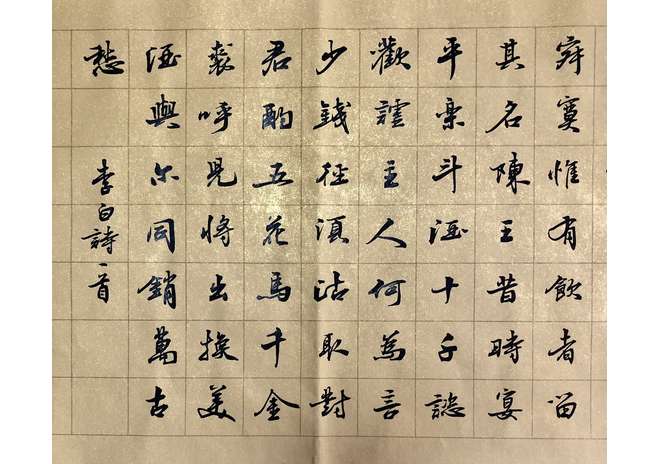 寂寞惟有飲者留
其名陳王昔時宴
平樂斗酒十千恣
歡謔主人何為言
少錢徑須沽取對
君酌五花馬千金
裘呼兒將出換美
酒與尔同銷萬古
愁
李白詩一首